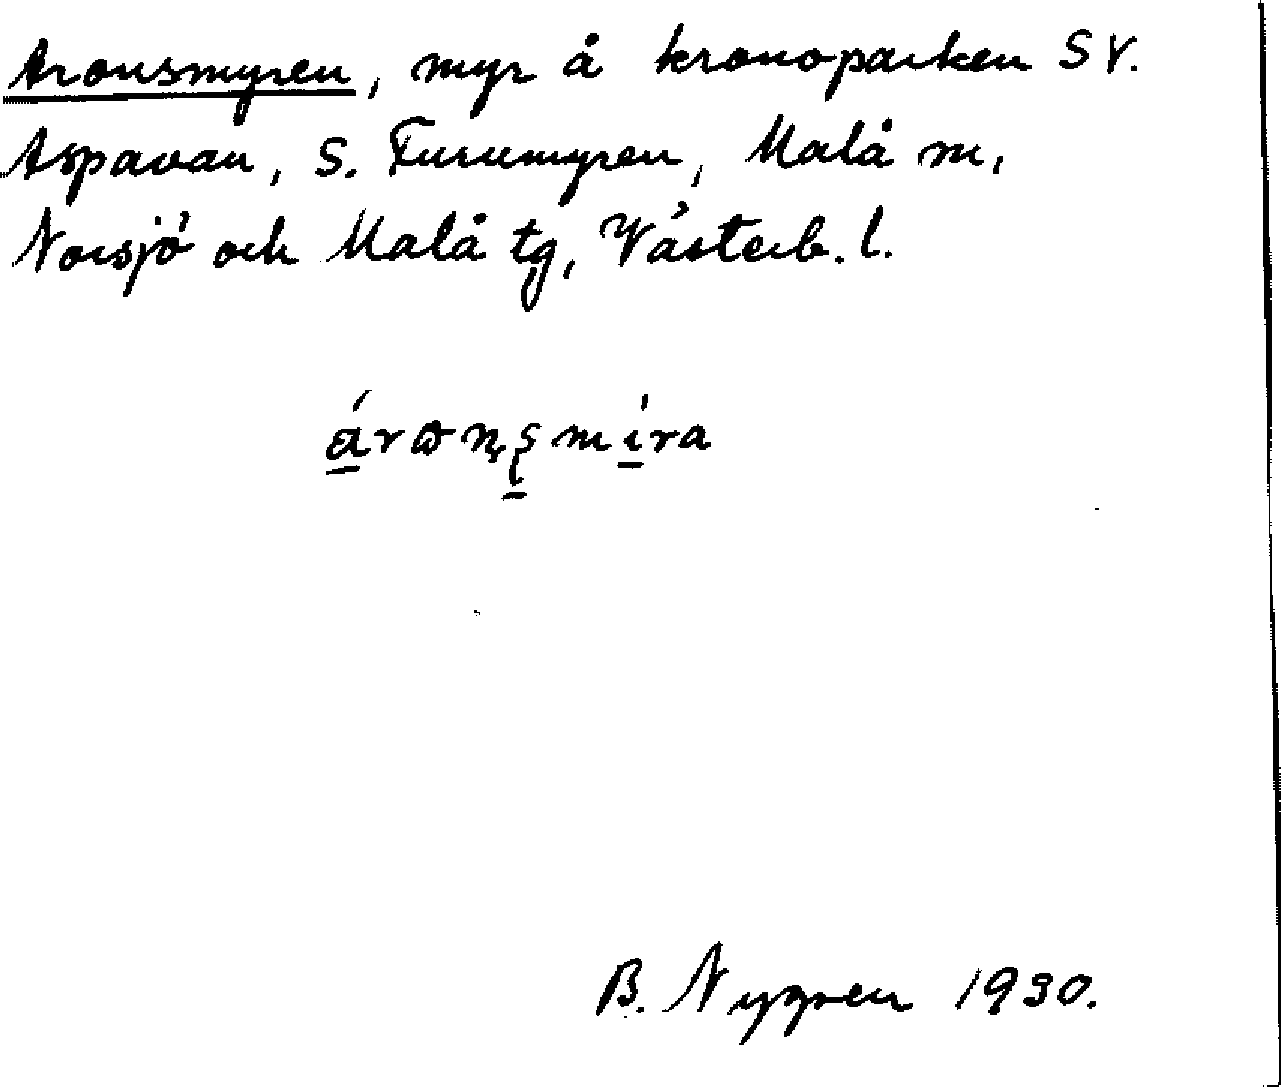 Aronsmyren, myr å kronoparken SV.
Aspavan, S. Furumyren, Malå sn,
Norsjö och Malå tg, Västerb. l.
B. Nygren 1930.